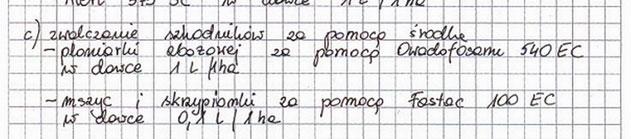 c) zwalczanie szkodników za pomocą środka
- ploniarki zbożowej za pomocą Owadofosemu 540 EC
w dawce 1 L /1ha
- mszyc i skrzypionki za pomocą Fastac 100 EC
w dawce 0,1 L /1ha